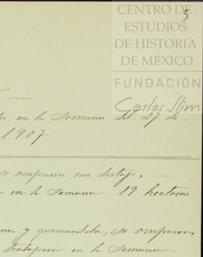 CENTRO DE
ESTUDIOS
DE HISTORIA
DE MÉXICO
FUNDACIÓN
Carlos Slim
5
en la Semana del 27 de
1907
se ocuparon
en la Semana 19 hectaras
y quemandola, se ocuparon
trabajaron en la Semana